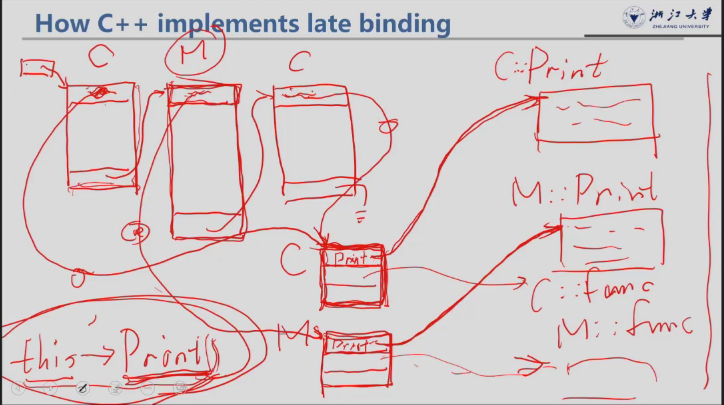 How C++ implements late binding
浙江大学
ZHEJIANG UNIVERSITY
C
M
C
C::Print
M::Print
C
Print
C::func
M::func
M
Print
this→Print()